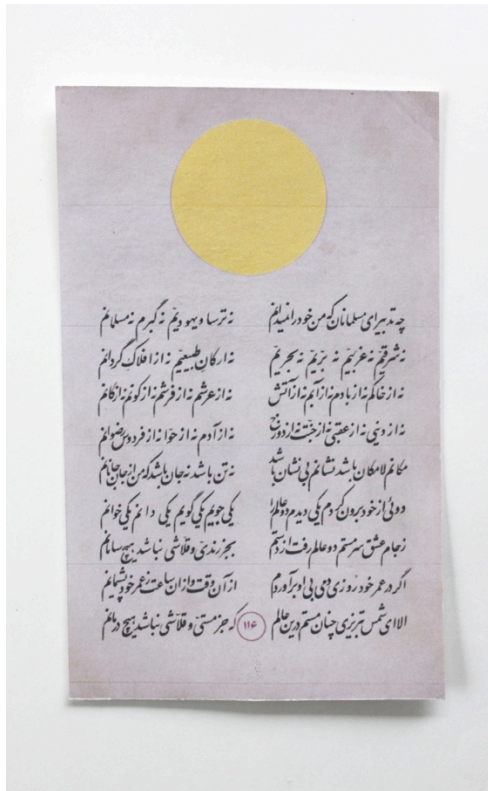 چه تدبیر ای مسلمانان که من خود را نمیدانم نه ترسا و یهودیم نه گبرم نه مسلمانم
نه شرقیم نه غربیم نه بریم نه بحریم نه ارکان طبیعیم نه از افلاک گردانم
نه از خاکم نه از بادم نه از آبم نه از آتش نه از عرشم نه از فرشم نه از کونم نه از کانم
نه از دنیی نه از عقبی نه از جنت نه از دوزخ نه از آدم نه از حوا نه از فردوس رضوانم
مکانم لامکان باشد نشانم بی نشان باشد نه تن باشد نه جان باشد که من از جان جانانم
دوئی از خود برون کردم یکی دیدم دو عالم را یکی جویم یکی گویم یکی دانم یکی خوانم
ز جام عشق سرمستم دو عالم رفت از دستم بجز رندی و قلاشی نباشد هیچ سامانم
اگر در عمر خود روزی دمی بی او برآوردم از آن وقت و از آن ساعت ز عمر خود پشیمانم
الا ای شمس تبریزی چنان مستم درین عالم که جز مستی و قلاشی نباشد هیچ درمانم
۱۱۴